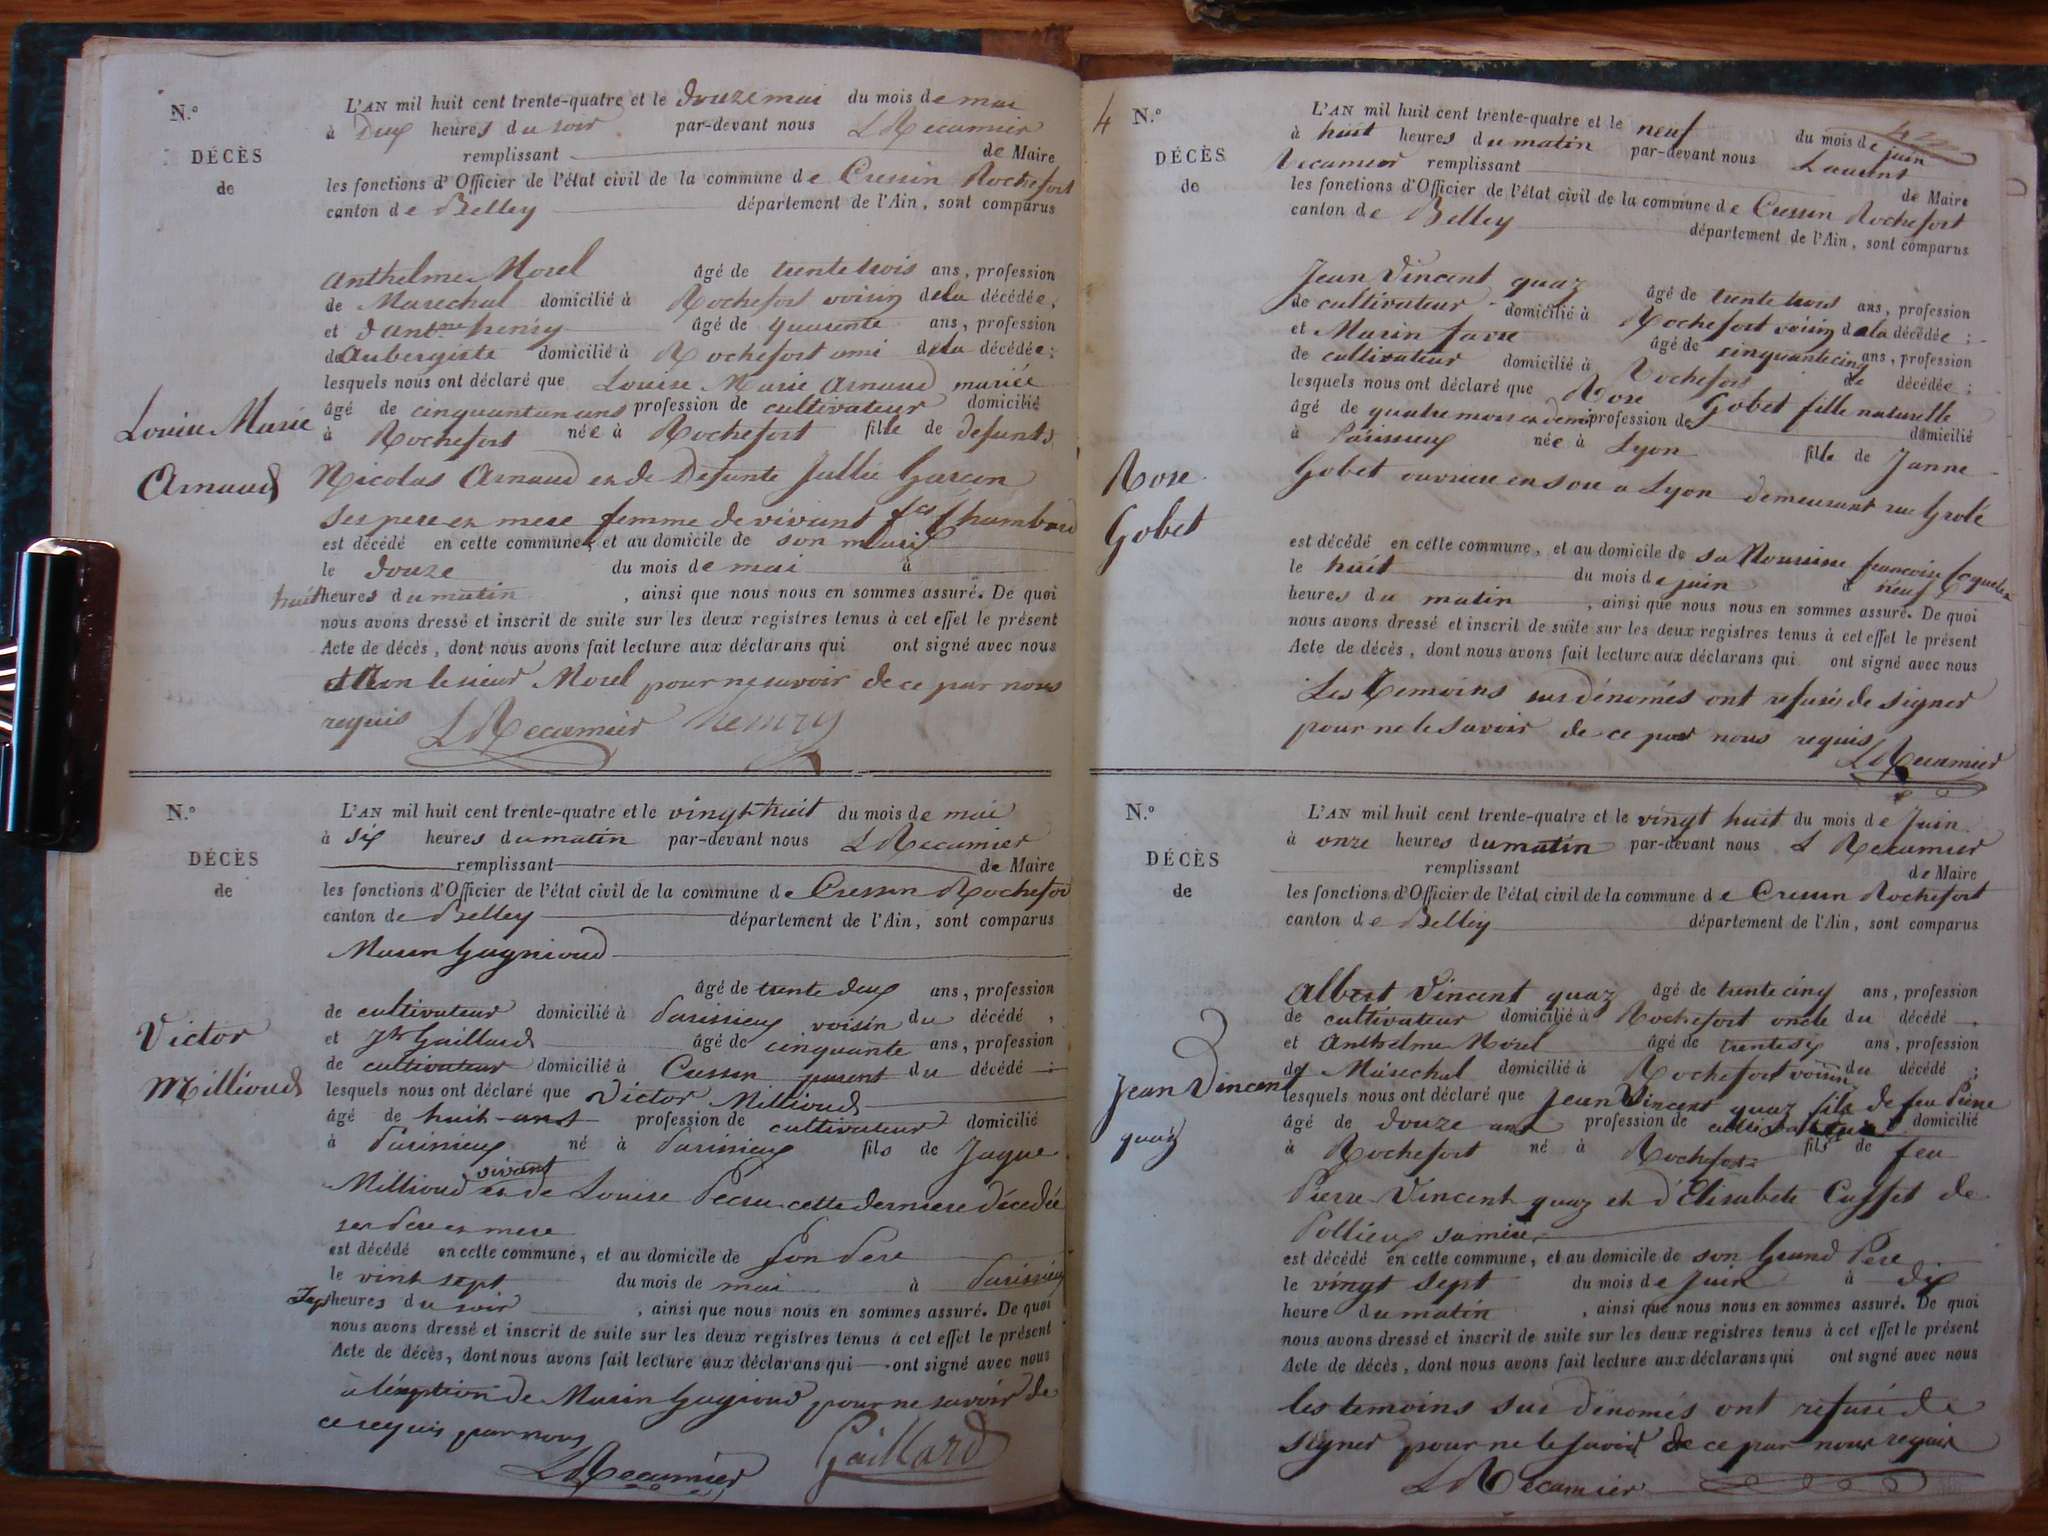 N.º
DÉCÈS
de
Louise Marie
Arnaud
L'AN mil huit cent trente-quatre et le douze mai du mois de mai
à Deux heures du soir par-devant nous L Recamier
remplissant de Maire
les fonctions d'Officier de l'état civil de la commune de Cressin Rochefort
canton de Belley département de l'Ain, sont comparus
Anthelme Morel âgé de trente trois ans, profession
de Marechal domicilié à Rochefort voisin de la décédée,
et henry âgé de quarente ans, profession
de Aubergiste domicilié à Rochefort ami de la décédée;
lesquels nous ont déclaré que Louise Marie Arnaud mariée
âgé de cinquantun ans profession de cultivateur domicilié
à Rochefort née à Rochefort fille de defunts
Nicolas Arnaud et de Defunte Jullie Garcin
ses pere et mere femme de vivant fcs Chambard
est décédé en cette commune, et au domicile de son mari
le douze du mois de mai à
huit heures du matin, ainsi que nous nous en sommes assuré. De quoi
nous avons dressé et inscrit de suite sur les deux registres tenus à cet effet le présent
Acte de décès, dont nous avons fait lecture aux déclarans qui ont signé avec nous
le sieur Morel pour ne savoir de ce par nous
requis L Recamier henry
N.º
DÉCÈS
de
Victor
Millioud
L'AN mil huit cent trente-quatre et le vingt huit du mois de mai
à six heures du matin par-devant nous L Recamier
remplissant de Maire
les fonctions d'Officier de l'état civil de la commune de Cressin Rochefor
canton de Belley département de l'Ain, sont comparus
Marin Gagnioud
âgé de trente deux ans, profession
de cultivateur domicilié à Parissieu voisin du décédé,
et Gaillard âgé de cinquante ans, profession
de cultivateur domicilié à Cressin parent du décédé;
lesquels nous ont déclaré que Victor Millioud
âgé de huit ans profession de cultivateur domicilié
à Parissieu né à Parissieu fils de Jaque
Millioud vivant et de Louise Pecru cette derniere décedée
ses Pere et mere
est décédé en cette commune, et au domicile de son Pere
le vint sept du mois de mai à Parissieu
sept heures du soir, ainsi que nous nous en sommes assuré. De quoi
nous avons dressé et inscrit de suite sur les deux registres tenus à cet effet le présent
Acte de décès, dont nous avons fait lecture aux déclarans qui ont signé avec nous
à léxption de Marin Gagnioud pour ne savoir de
ce requis par nous
L Recamier Gaillard
4
N.º
DÉCÈS
de
Rose
Gobet
L'AN mil huit cent trente-quatre et le neuf du mois de juin
à huit heures du matin par-devant nous Laurent
Recamier remplissant de Maire
les fonctions d'Officier de l'état civil de la commune de Cressin Rochefort
canton de Belley département de l'Ain, sont comparus
Jean Vincent quaz âgé de trente trois ans, profession
de cultivateur domicilié à Rochefort voisin de la décédée;
et Marin favre âgé de cinquante cinq ans, profession
de cultivateur domicilié à Rochefort de décédée;
lesquels nous ont déclaré que Rose Gobet fille naturelle
âgé de quatre mois et demi profession de domicilié
à Parissieu née à Lyon fille de Janne
Gobet ouvriere en soie a Lyon demeurant rue Grolé
est décédé en cette commune, et au domicile de sa Nourrisse francoise
le huit du mois de juin à neuf
heures du matin, ainsi que nous nous en sommes assuré. De quoi
nous avons dressé et inscrit de suite sur les deux registres tenus à cet effet le présent
Acte de décès, dont nous avons fait lecture aux déclarans qui ont signé avec nous
Les Temoins sus dénomés ont refusés de signer
pour ne le savoir de ce par nous requis
L Recamier
N.º
DÉCÈS
de
Jean Vincent
quaz
L'AN mil huit cent trente-quatre et le vingt huit du mois de Juin
à onze heures du matin par-devant nous L Recamier
remplissant de Maire
les fonctions d'Officier de l'état civil de la commune de Cressin Rochefort
canton de Belley département de l'Ain, sont comparus
Albert Vincent quaz âgé de trente cinq ans, profession
de cultivateur domicilié à Rochefort oncle du décédé
et Anthelme Morel âgé de trente six ans, profession
de Maréchal domicilié à Rochefort voisin du décédé;
lesquels nous ont déclaré que Jean Vincent quaz fils de feu Pierre
âgé de douze ans profession de cultivateur domicilié
à Rochefort né à Rochefort fils de feu
Pierre Vincent quaz et d'Elisabete Cusset de
Pollieu sa mere
est décédé en cette commune, et au domicile de son Grand Pere
le vingt sept du mois de Juin à dix
heure du matin, ainsi que nous nous en sommes assuré. De quoi
nous avons dressé et inscrit de suite sur les deux registres tenus à cet effet le présent
Acte de décès, dont nous avons fait lecture aux déclarans qui ont signé avec nous
les temoins sus dénomés ont refusé de
signer pour ne le savoir de ce par nous requis
L Recamier